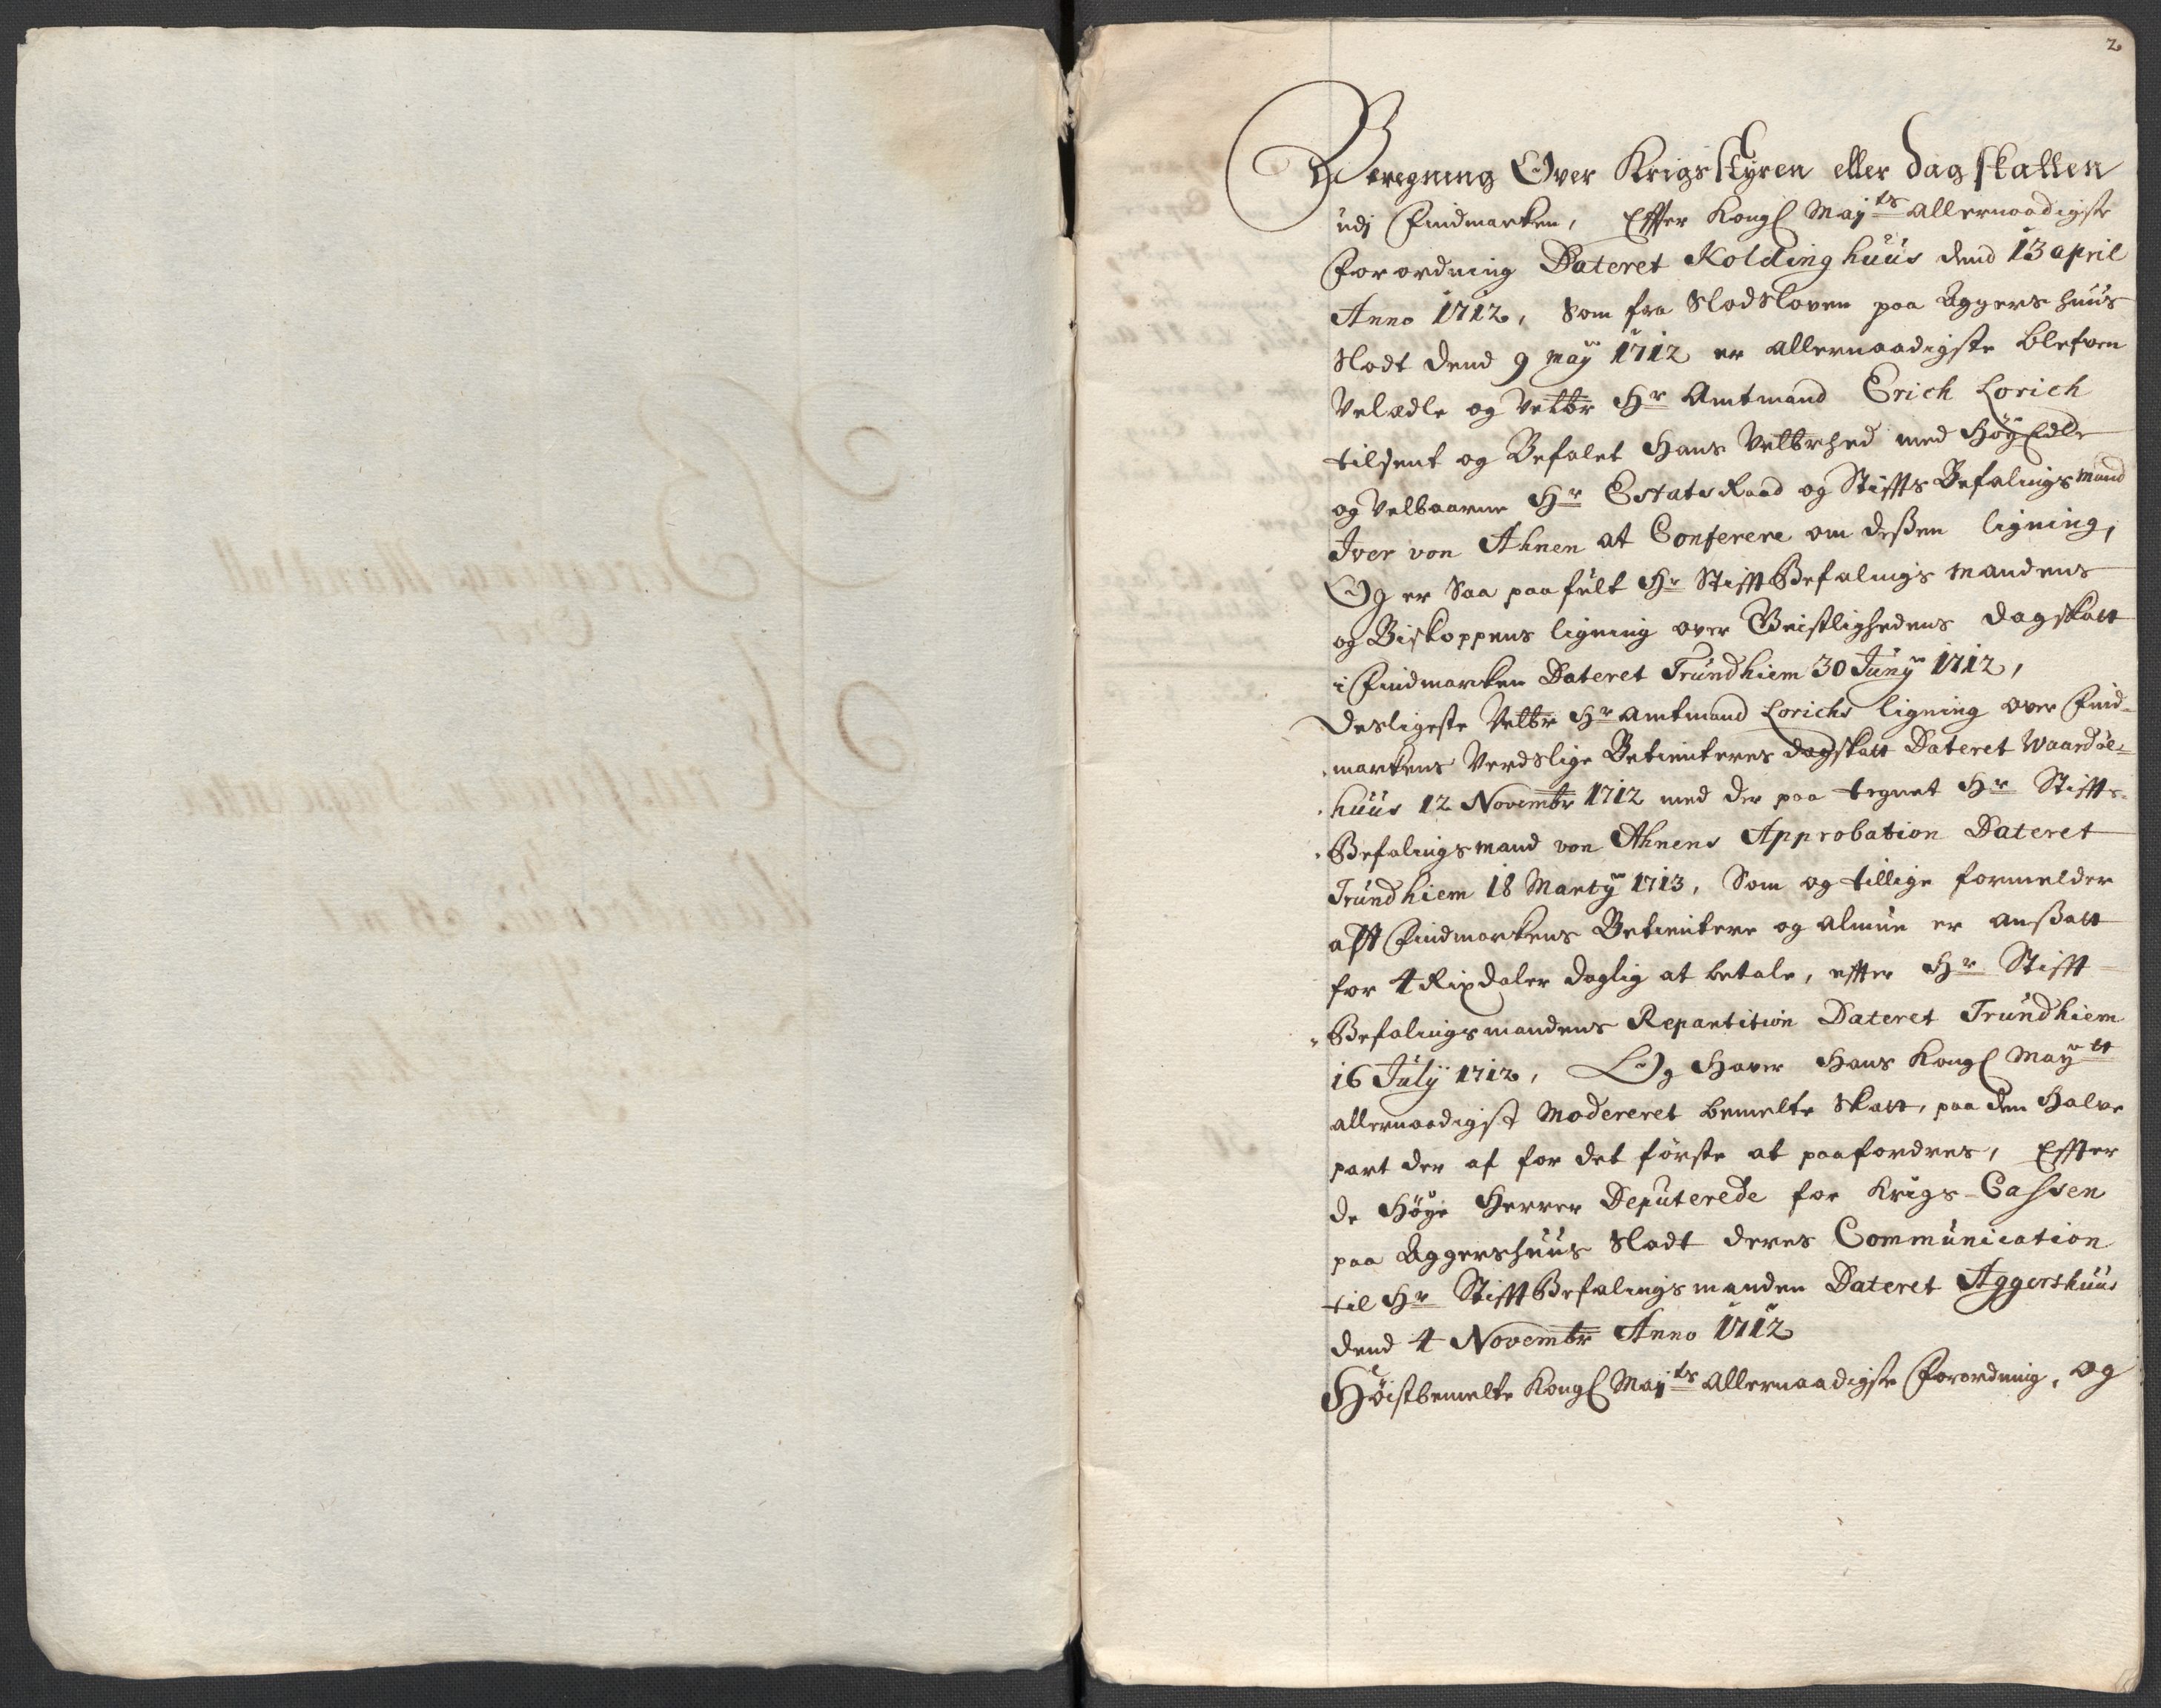 2
Beregning Over Krigsstyren eller dagskatten
udj Findmarken, Effter Kongl May<sup>ts</sup> allernaadigste
Forordning Dateret Koldinghuus dend 13 april
Anno 1712, Som fra Slodsloven paa Aggershuus
Slodt dend 9 may 1712 er allernaadigste blefven
Velædle og Velbr H<sup>r</sup> Amtmand Erich Lorich
tilsent og Befalet Hans Velbrhed med HøyEdle
og Velbaarne H<sup>r</sup> Estats Raad og Stiffts Befalings Mand
Iver von Ahnen at Conferere om deßen ligning,
Og er Saa paafult H<sup>r</sup> StifftBefalings Mandens
og Biskoppens ligning over Geistlighedens dagskatt
i Findmarken Dateret Trundhiem 30 Juny 1712,
desligeste Velbr H<sup>r</sup> Amtmand Lorichs ligning over Find-
marckens Verdslige Betienteres dagskatt Dateret Waardøe-
huus 12 Novembr 1712 med der paa tegnet H<sup>r</sup> Stiffts-
Befalingsmand von Ahnens Approbation Dateret
Trundhiem 18 Marty 1713, Som og tillige formelder
att Findmarkens Betientere og almue er anßatt
for 4 Rixdaler daglig at betale, effter H<sup>r</sup> Stifft-
Befalingsmandens Repartition Dateret Trundhiem
16 July 1712, Og Haver Hans Kongl May<sup>tt</sup>
allernaadigst Modereret bemelte Skatt, paa den Halve
part der af for det første at paafordres, Effter
de Høye Herrer Deputerede for Krigs-Cassen
paa Aggershuus Slodt deres Communication
til H<sup>r</sup> StifftBefalingsmanden Dateret Aggershuus
dend 4 Novembr Anno 1712
Høistbemelte Kongl May<sup>ts</sup> allernaadigste Forordning, og